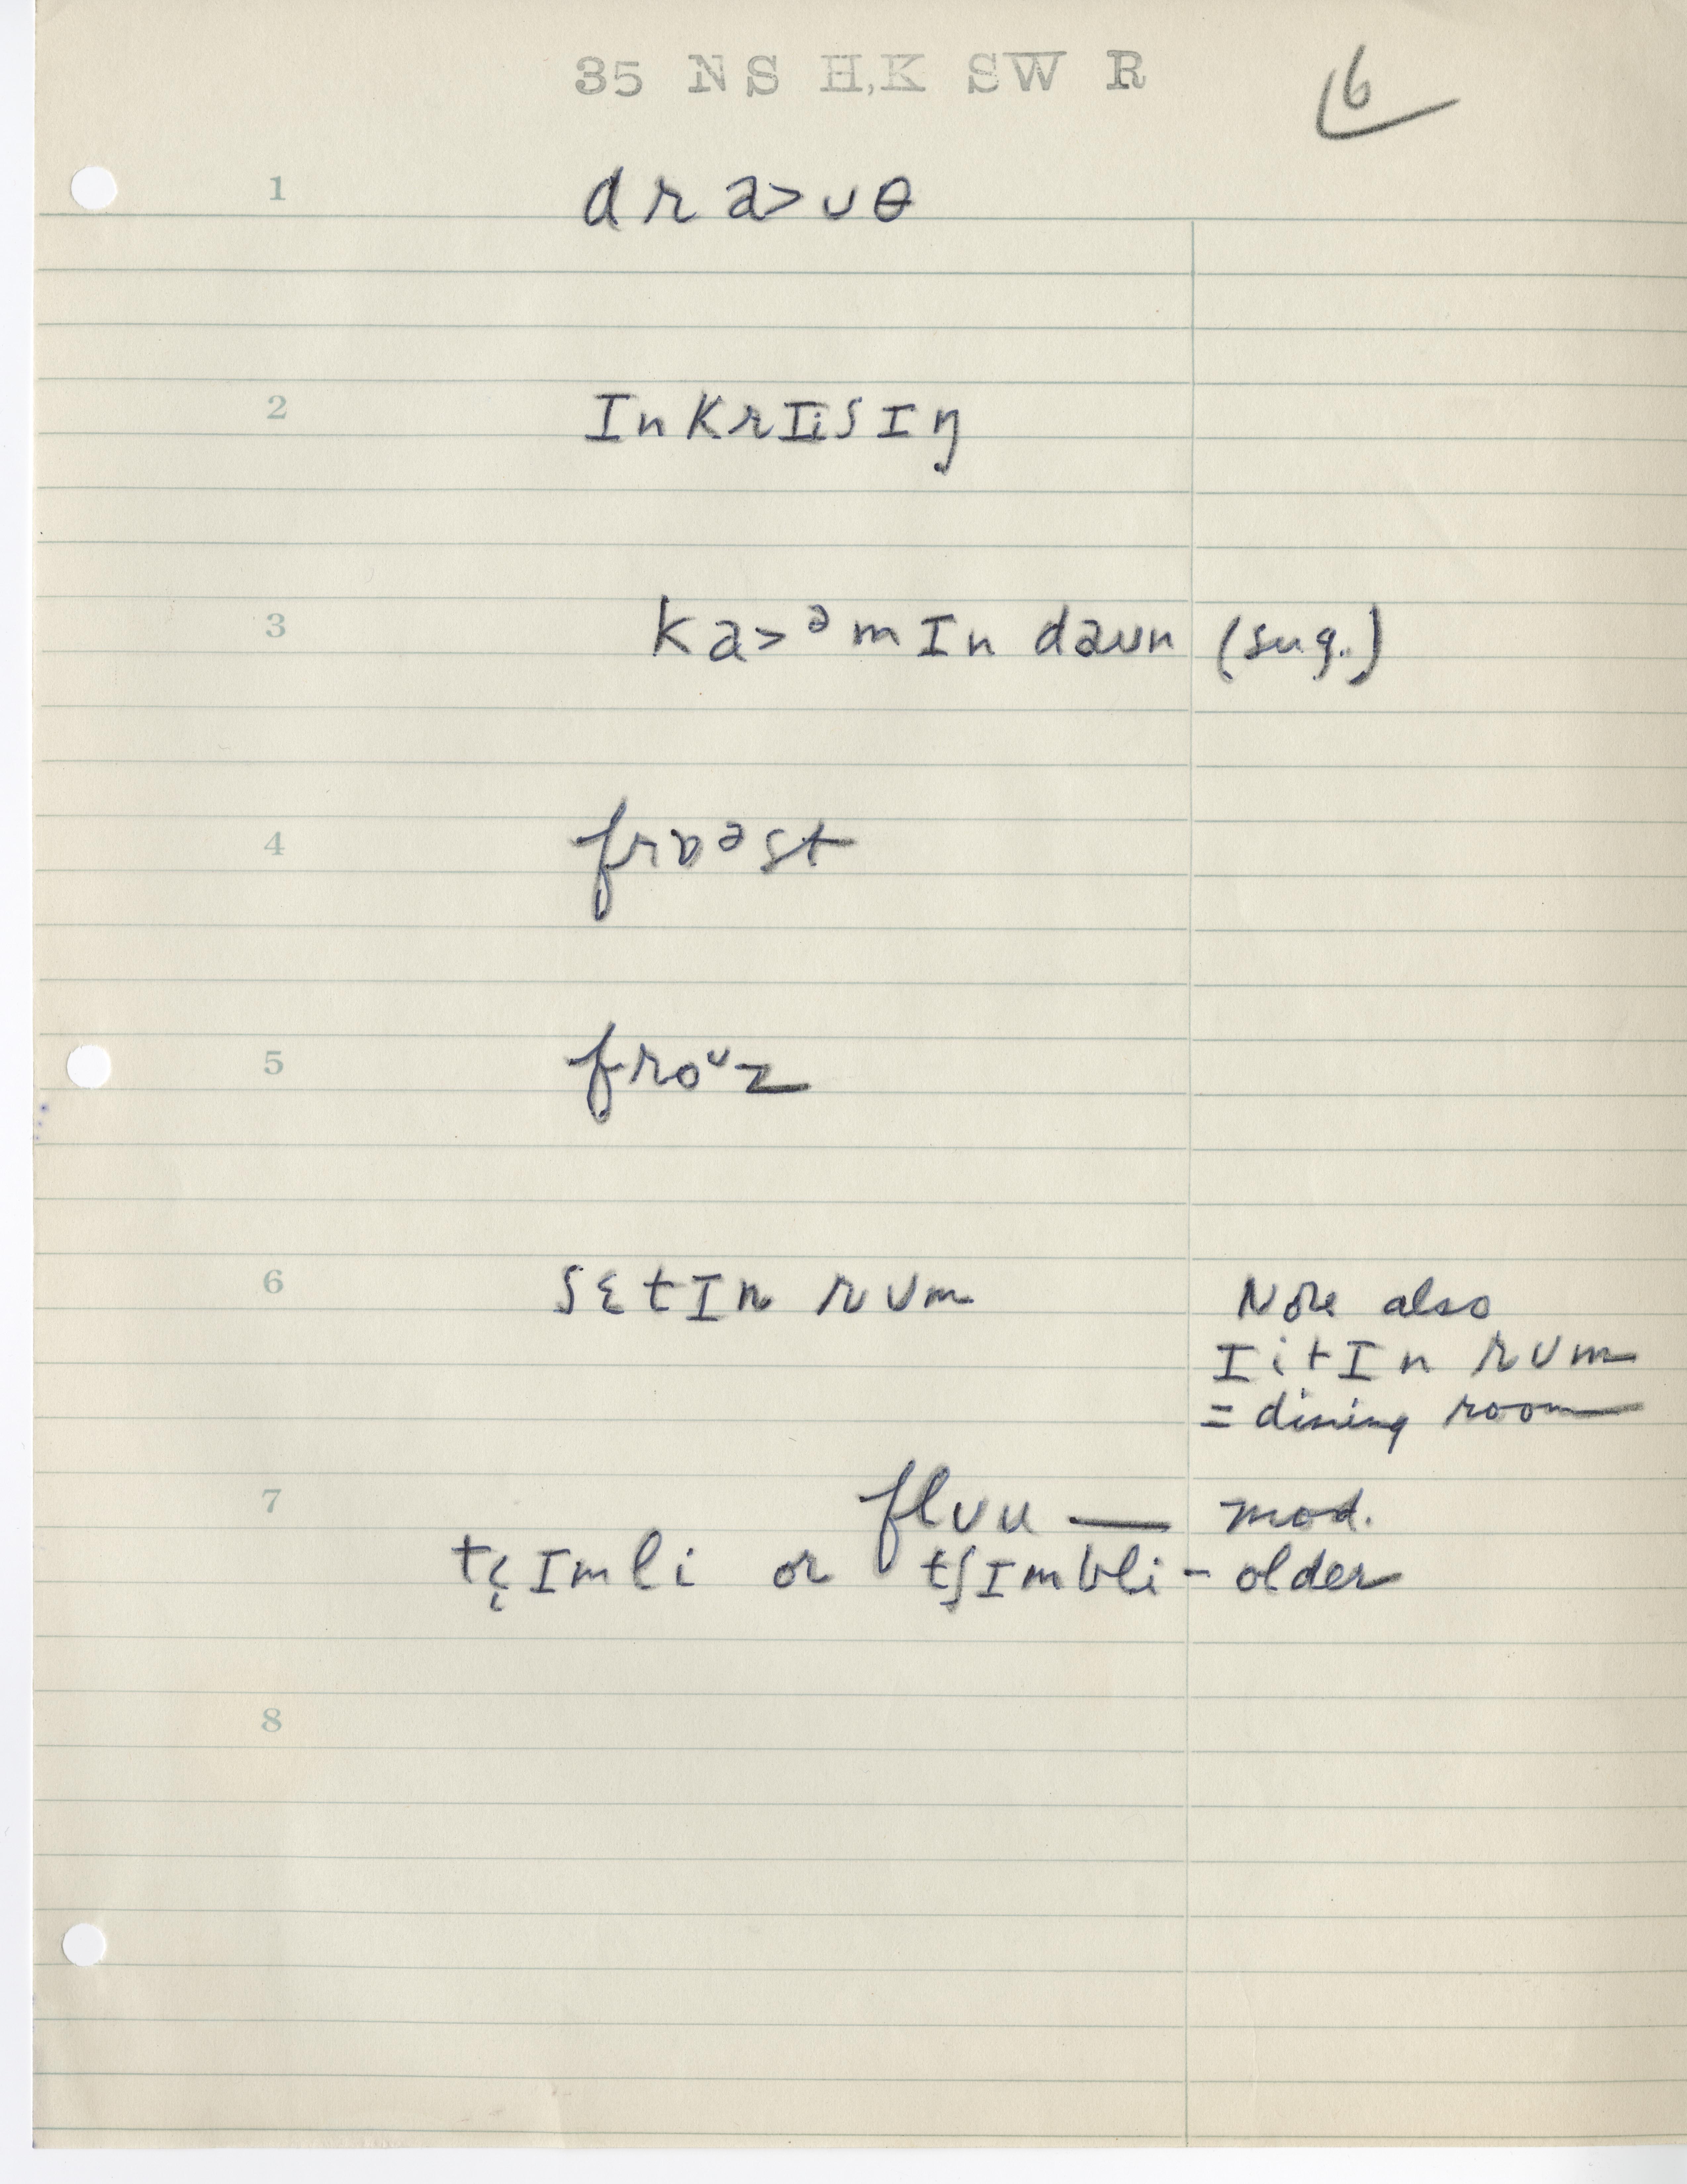 35 NS H,K SW R
6
1 dra>ʊθ
2 ɪnkrɪisɪŋ
3 ka>ᵊmɪn daʊn (sug.)
4 frɒᵊst
5 froᶷz
6 sɛtɪn rʊm
Note also
ɪitɪn rʊm
= dining room
7 flʊu — mod.
tʃɪmli or tʃɪmbli - older
8